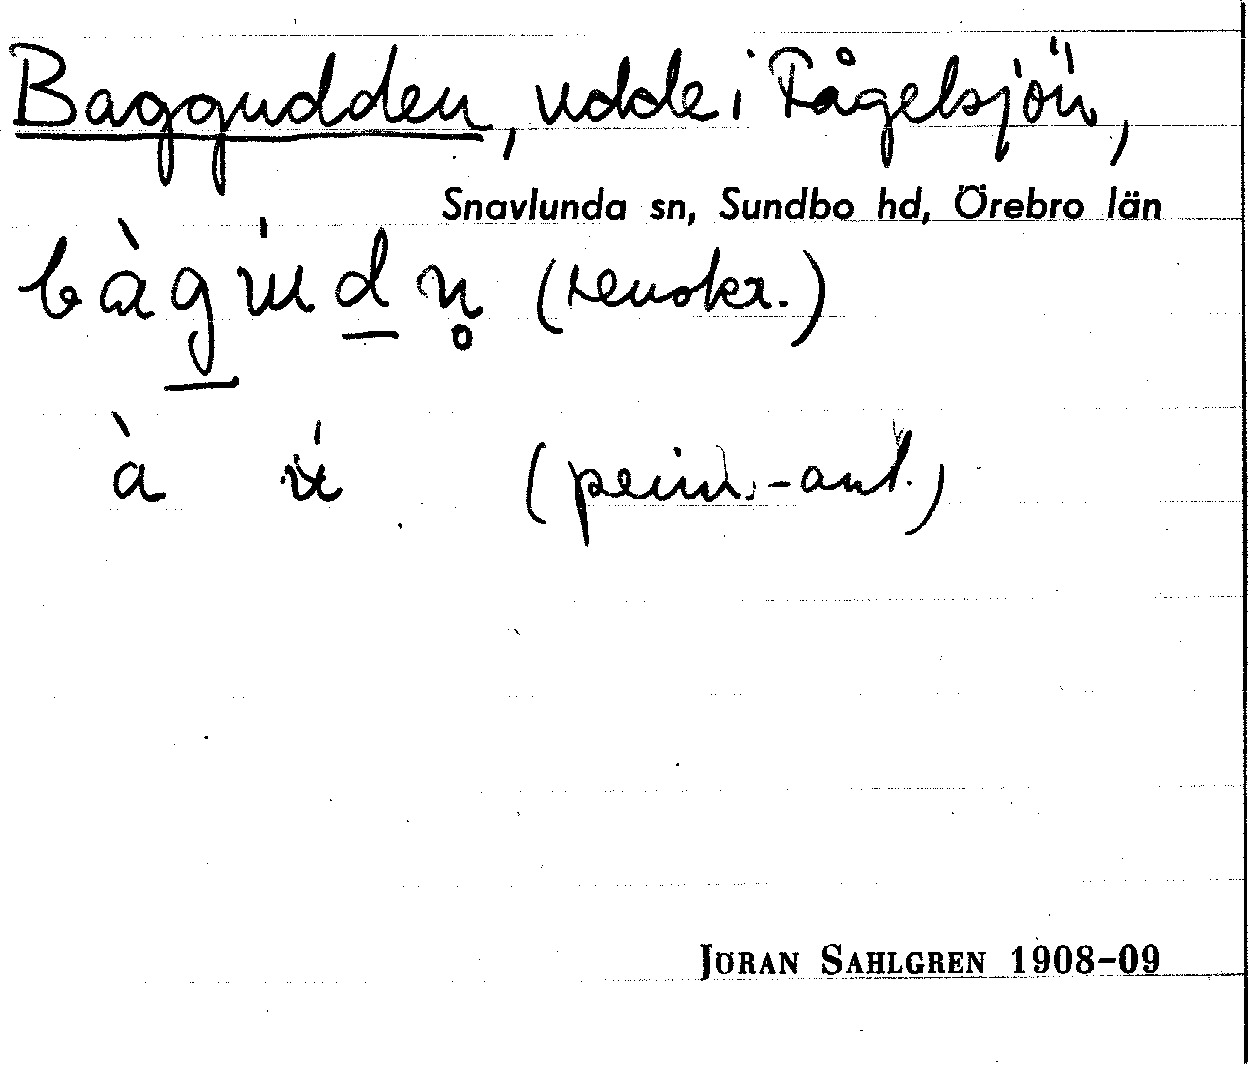 Baggudden, udde i Fågelsjön,
Snavlunda sn, Sundbo hd, Örebro län
(renskr.)
(prim.-ant.)
JÖRAN SAHLGREN 1908–09